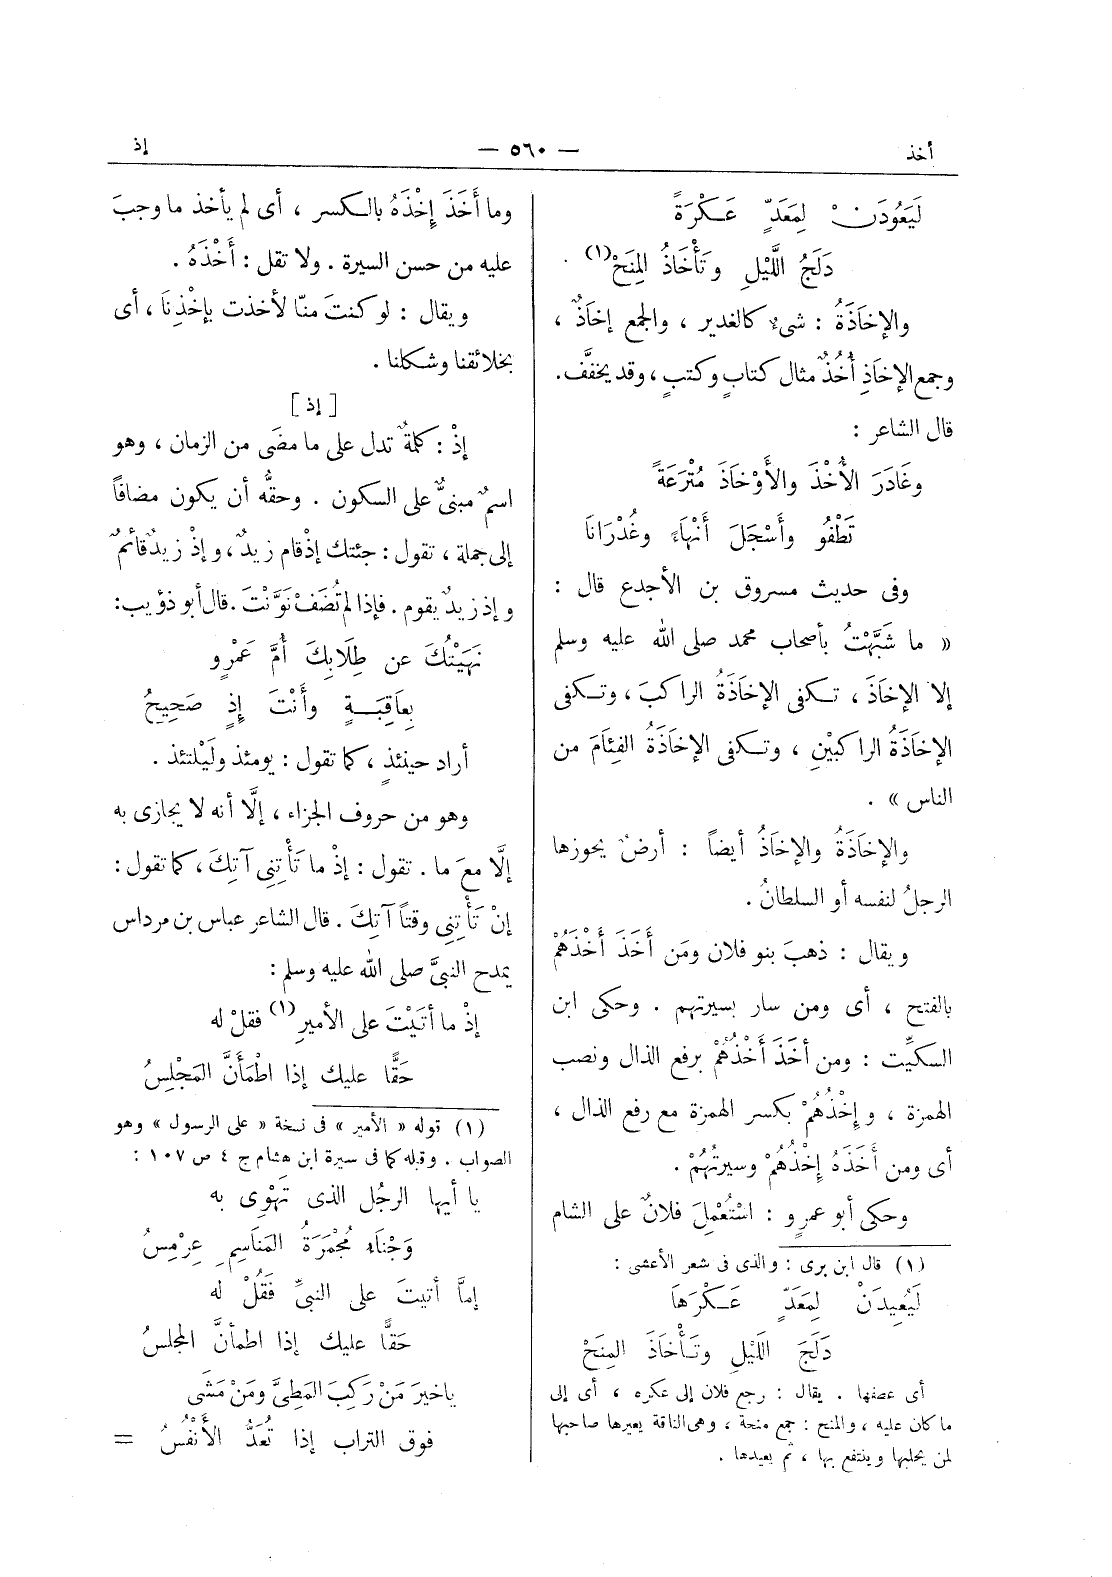 أخذ — ٥٦٠ — إذ
لَيَعُودَنْ لِمَعَدٍّ عَكْرَةً
دَلَجُ اللَّيْلِ وتَأْخَاذُ المِنَحْ(١) .
والإخَاذَةُ : شىء كالغدير ، والجمع إخَاذٌ ،
وجمع الإخَاذِ أُخُذٌ مثال كتابٍ وكتبٍ ، وقد يخفَّف .
قال الشاعر :
وغَادَرَ الأُخْذَ والأَوْخَاذَ مُتْرَعَةً
تَطْفُو وأَسْجَلَ أَنْهَاءً وغُدْرَانَا
وفى حديث مسروق بن الأجدع قال :
« ما شَبَّهْتُ بأصحاب محمد صلى الله عليه وسلم
إلا الإخَاذَ ، تكفى الإخَاذَةُ الراكبَ ، وتكفى
الإخَاذَةُ الراكبَيْنِ ، وتكفى الإخَاذَةُ الفِئَامَ من
الناس » .
والإخَاذَةُ والإخَاذُ أيضاً : أرضٌ يحوزها
الرجلُ لنفسه أو السلطانُ .
ويقال : ذهبَ بنو فلان ومَن أَخَذَ أَخْذَهُمْ
بالفتح ، أى ومن سار بسيرتهم . وحكى ابن
السكِّيت : ومن أَخَذَ أَخْذُهُمْ برفع الذال ونصب
الهمزة ، وإخْذُهُمْ بكسر الهمزة مع رفع الذال ،
أى ومن أَخَذَهُ إخْذُهُمْ وسيرتُهُمْ .
وحكى أبو عمرٍو : اسْتُعْمِلَ فلانٌ على الشام
(١) قال ابن برى : والذى فى شعر الأعشى :
لَيُعِيدَنْ لِمَعَدٍّ عَكْرَهَا
دَلَجَ اللَّيْلِ وتَأْخَاذَ المِنَحْ
أى عصفها . يقال : رجع فلان إلى عكره ، أى إلى
ما كان عليه ، والمنح : جمع منحة ، وهى الناقة يعيرها صاحبها
لمن يحلبها وينتفع بها ، ثم يعيدها .
وما أَخَذَ إِخْذَهُ بالكسر ، أى لم يأخذ ما وجبَ
عليه من حسن السيرة . ولا تقل : أَخْذَهُ .
ويقال : لو كنتَ منّا لأخذت بإخْذِنَا ، أى
بخلائقنا وشكلنا .
[ إذ ]
إذْ : كلمةٌ تدل على ما مضَى من الزمان ، وهو
اسمٌ مبنىٌّ على السكون . وحقُّه أن يكون مضافاً
إلى جملة ، تقول : جئتك إذْ قام زيدٌ ، وإذْ زيدٌ قائمٌ
وإذ زيدٌ يقوم . فإذا لم تُضَفْ نَوَّنْتَ . قال أبو ذؤيب :
نَهَيْتُكَ عن طِلَابِكَ أُمَّ عَمْرٍو
بِعَاقِبَةٍ وأَنْتَ إِذٍ صَحِيحُ
أراد حينئذٍ ، كما تقول : يومئذ ولَيْلتئذ .
وهو من حروف الجزاء ، إلَّا أنه لا يجازى به
إلَّا معَ ما . تقول : إذْ ما تَأْتِنِى آتِكَ ، كما تقول :
إنْ تَأْتِنِى وقتاً آتِكَ . قال الشاعر عباس بن مرداس
يمدح النبىَّ صلى الله عليه وسلم :
إذْ ما أتَيْتَ على الأميرِ(١) فقلْ له
حَقًّا عليك إذا اطْمَأَنَّ المَجْلِسُ
(١) قوله « الأمير » فى نسخة « على الرسول » وهو
الصواب . وقبله كما فى سيرة ابن هشام ج ٤ ص ١٠٧ :
يا أيها الرجُل الذى تَهْوِى به
وَجْنَاءُ مُجْمَرَةُ المَنَاسِمِ عِرْمِسُ
إمَّا أتيتَ على النبىِّ فَقُلْ له
حَقًّا عليك إذا اطمأنَّ المجلسُ
ياخيرَ مَنْ رَكِبَ المَطِىَّ ومَنْ مَشَى
فوق التراب إذا تُعَدُّ الأَنْفُسُ =